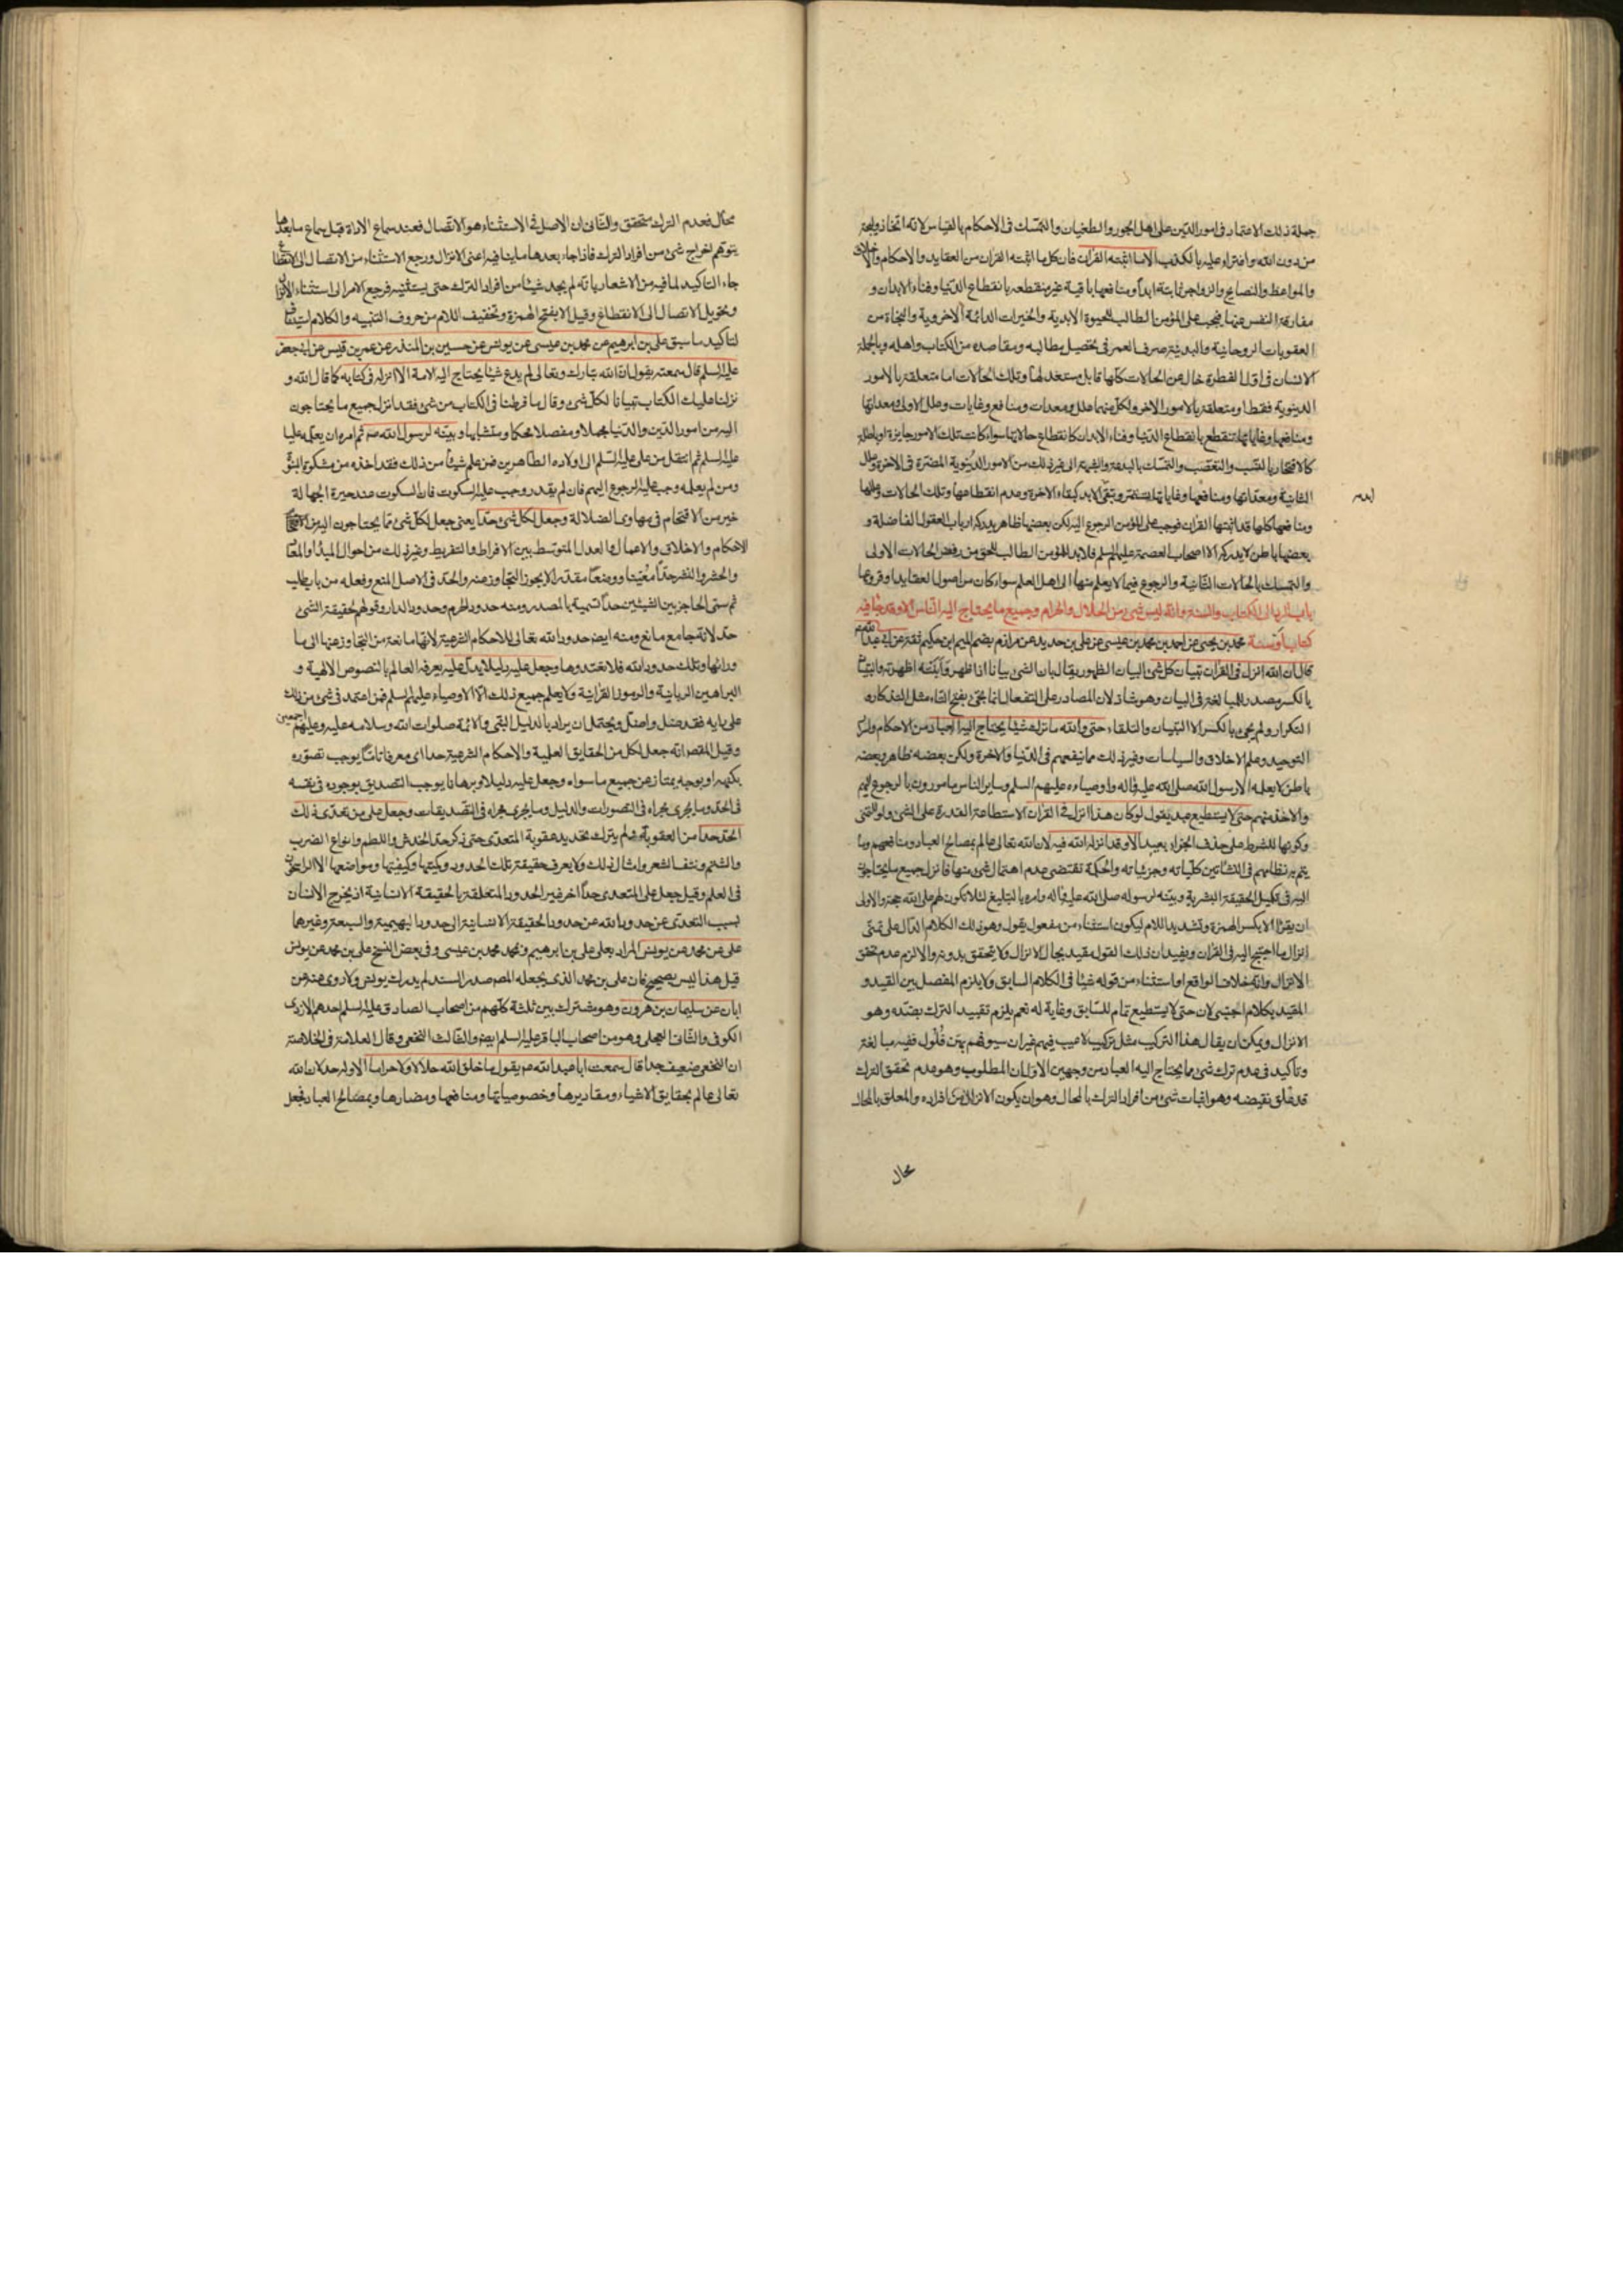 جملة ذلك الاعتماد فى امور الدين على اهل الجور والطغيان والتمسّك فى الاحكام بالقياس لانه اتخاذ وليجة
من دون الله وافتراء عليه بالكذب الا ما اثبته القرآن فان كل ما اثبته القرآن من العقايد والاحكام والاخلاق
والمواعظ والنصايح والزواجر ثابتة ابداً ومنافعها باقية غير منقطعه بانقطاع الدّنيا وفناء الابدان و
مفارقة النفس عنها فيجب على المؤمن الطالب للحيوة الابدية والخيرات الدائمة الاخروية والنجاة من
العقوبات الروحانية والبدنية صرف العمر فى تحصيل مطالبه ومقاصده من الكتاب واهله وبالجملة
الانسان فى اوّل الفطرة خال عن الحالات كلّها قابل مستعد لها وتلك الحالات اما متعلقة بالامور
الدنيوية فقط او متعلقة بالامور الاخر ولكل منهما علل ومعدات ومنافع وغايات وعلل الاولى ومعداتها
ومنافعها وغاياتها تنقطع بانقطاع الدّنيا وفناء الابدان كانقطاع حالاتها سواء كانت تلك الامور جايزة او باطلة
كالافتخار بالنسب والتعصّب والتمسّك بالبدعة والشبهة الى غير ذلك من الامور الدنيوية المضرّة فى الاخرة وعلل
الثانية ومعدّاتها ومنافعها وغاياتها تستمر وتبقى الابد كبقاء الاخرة وعدم انقطاعها وتلك الحالات وعللها
ومنافعها كلها قد اثبتها القرآن فوجب على المؤمن الرجوع اليه لكن بعضها ظاهر يدركه ارباب العقول الفاضلة و
بعضها باطن لا يدركه الا اصحاب العصمة عليهم السلم فلابد للمؤمن الطالب للحق من رفض الحالات الاولى
والتمسك بالحالات الثانية والرجوع فيما لا يعلم منها الى اهل العلم سواء كان من اصول العقايد او فروعها
باب الرد الى الكتاب والسنة وانه ليس شئ من الحلال والحرام وجميع ما يحتاج اليه الناس الا وقد جاء فيه
كتاب او سنة محمد بن يحيى عن احمد بن محمد بن عيسى عن على بن حديد عن مرازم بضم الميم ابن حكيم ثقة عن ابى عبد الله
قال ان الله انزل فى القرآن تبيان كل شئ البيان الظهور يقال بان الشئ بيانا اذا ظهر وابنته اظهرته والتبيان
بالكسر مصدر للمبالغة فى البيان وهو شاذ لان المصادر على التفعال انما تجئ بفتح التاء مثل التذكار و
التكرار ولم يجئ بالكسر الا التبيان والتلقاء حتى والله ما ترك شيئا يحتاج اليه العباد من الاحكام واسرار
التوحيد وعلم الاخلاق والسياسات وغير ذلك مما ينفعهم فى الدّنيا والاخرة ولكن بعضه ظاهر وبعضه
باطن لا يعلمه الا رسول الله صلى الله عليه وآله واوصياءه عليهم السلم وساير الناس مامورون بالرجوع اليهم
والاخذ منهم حتى لا يستطيع عبد يقول لو كان هذا انزل فى القرآن الاستطاعة القدرة على الشئ ولو للتمنى
وكونها للشرط على حذف الجزاء بعيد الا وقد انزله الله فيه لان الله تعالى عالم بمصالح العباد ومنافعهم وما
يتم به نظامهم فى النشأتين كلياته وجزئياته والحكمة تقتضى عدم اهمال شئ منها فانزل جميع ما يحتاجون
اليه فى تكميل الحقيقة البشرية وبيّنه لرسوله صلى الله عليه وآله وامره بالتبليغ لئلا تكون لهم على الله حجة والاولى
ان يقرأ الا بكسر الهمزة وتشديد اللام ليكون استثناء من مفعول يقول وهو ذلك الكلام الدال على تمنّى
انزال ما احتيج اليه فى القرآن ويفيد ان ذلك القول مقيد بحال الانزال ولا يتحقق بدونه والا لزم عدم تحقق
الانزال وانه خلاف الواقع او استثناء من قوله شيئا فى الكلام السابق ولا يلزم الفصل بين القيد و
المقيد بكلام اجنبى لان حتى لا يستطيع تمام للسابق وغاية له نعم يلزم تقييد الترك بضدّه وهو
الانزال ويمكن ان يقال هذا التركيب مثل تركيب لا عيب فيهم غير ان سيوفهم بهن فلول ففيه مبالغة
وتأكيد فى عدم ترك شئ مما يحتاج اليه العباد من وجهين الاول ان المطلوب وهو عدم تحقق الترك
قد علّق نقيضه وهو اثبات شئ من افراد الترك بالمحال وهو ان يكون الانزال من افراده والمعلق بالمحال
محال
محال فعدم الترك متحقق والثانى ان الاصل فى الاستثناء هو الاتصال فعند سماع الاداة قبل سماع ما بعدها
يتوهم اخراج شئ من افراد الترك فاذا جاء بعدها ما ينافيه اعنى الانزال ورجع الاستثناء من الاتصال الى الانقطاع
جاء التاكيد لما فيه من الاشعار بانه لم يجد شيئا من افراد الترك حتى يستثنيه فرجع الامر الى استثناء الانزال
وتحويل الاتصال الى الانقطاع وقيل الا بفتح الهمزة وتخفيف اللام من حروف التنبيه والكلام استيناف
لتاكيد ما سبق على بن ابرهيم عن محمد بن عيسى عن يونس عن حسين بن المنذر عن عمر بن قيس عن ابى جعفر
عليه السلم قال سمعته يقول ان الله تبارك وتعالى لم يدع شيئا يحتاج اليه الامة الا انزله فى كتابه كما قال الله و
نزلنا عليك الكتاب تبيانا لكل شئ وقال ما فرطنا فى الكتاب من شئ فقد انزل جميع ما يحتاجون
اليه من امور الدّين والدّنيا مجملا ومفصلا محكما ومتشابها وبيّنه لرسول الله صه ثم امره ان يعلّمه عليا
عليه السلم ثم انتقل من على عليه السّلم الى اولاده الطاهرين فمن علم شيئا من ذلك فقد اخذه من مشكوة النبوّة
ومن لم يعلمه وجب عليه الرجوع اليهم فان لم يقدر وجب عليه السكوت فان السكوت عند حيرة الجهالة
خير من الاقتحام فى مهاوى الضلالة وجعل لكل شئ حدّا يعنى جعل لكل شئ مما يحتاجون اليه من
الاحكام والاخلاق والاعمال والعدل المتوسّط بين الافراط والتفريط وغير ذلك من احوال المبدأ والمعاد
والحشر والنشر حدّا معيّنا ووضعا مقدّرا لا يجوز التجاوز عنه والحدّ فى الاصل المنع وفعله من باب طلب
ثم سمّى الحاجز بين الشيئين حدّا تسمية بالمصدر ومنه حدود الحرم وحدود الدار وقولهم لحقيقة الشئ
حدّ لانه جامع مانع ومنه ايضا حدود الله تعالى للاحكام الشرعية لانها مانعة من التجاوز عنها الى ما
ورائها وتلك حدود الله فلا تعتدوها وجعل عليه دليلا يدلّ عليه يعرفه العالم بالنصوص الالهية و
البراهين الربانية والرموز القرآنية ولا يعلم جميع ذلك الا الاوصياء عليهم السلم فمن اعتمد فى شئ من ذلك
على رايه فقد ضل واضلّ ويحتمل ان يراد بالدليل النبى والائمة صلوات الله وسلامه عليه وعليهم اجمعين
وقيل المقص انه جعل لكل من الحقايق العلمية والاحكام الشرعية حدا اى معرفا تامّا يوجب تصوّره
بكنهه او بوجه يمتاز عن جميع ما سواه وجعل عليه دليلا وبرهانا يوجب التصديق بوجوده فى نفسه
فى الحدّ وما يجرى مجراه فى التصورات والدليل وما يجرى مجراه فى التصديقات وجعل على من تعدّى ذلك
الحدّ حدا من العقوبة ولم يترك تحديد عقوبة المتعدّى حتى ذكر حدّ الخدش واللطم وانواع الضرب
والشتم ونتف الشعر وامثال ذلك ولا يعرف حقيقة تلك الحدود وكميّتها وكيفيّتها ومواضعها الا الراسخون
فى العلم وقيل جعل على المتعدى حدّا اخر غير الحدود المتعلقة بالحقيقة الانسانية اذ يخرج الانسان
بسبب التعدّى عن حدود الله عن حدود الحقيقة الانسانية الى حدود البهيمية والسبعية وغيرها
على عن محمد عن يونس المراد بعلى على بن ابرهيم وبمحمد محمد بن عيسى وفى بعض النسخ على بن محمد عن يونس
قيل هذا ليس بصحيح فان على بن محمد الذى يجعله المصر صدر السند لم يدرك يونس ولا روى عنه عن
ابان عن سليمان بن هرون وهو مشترك بين ثلثة كلّهم من اصحاب الصادق عليه السلم احدهم الازدى
الكوفى والثانى العجلى وهو من اصحاب الباقر عليه السلم ايض والثالث النخعى وقال العلامة فى الخلاصة
ان النخعى ضعيف جدا قال سمعت ابا عبد الله عم يقول ما خلق الله حلالا ولا حراما الا وله حد لان الله
تعالى عالم بحقايق الاشياء ومقاديرها وخصوصياتها ومنافعها ومضارها وبمصالح العباد فجعل